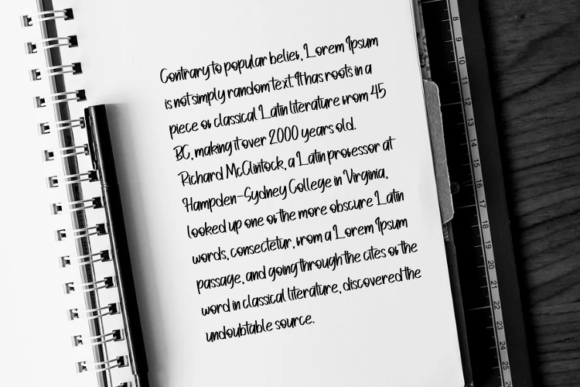 Contrary to popular belief, Lorem Ipsum
is not simply random text. It has roots in a
piece of classical Latin literature from 45
BC, making it over 2000 years old.
Richard McClintock, a Latin professor at
Hampden-Sydney College in Virginia,
looked up one of the more obscure Latin
words, consectetur, from a Lorem Ipsum
passage, and going through the cites of the
word in classical literature, discovered the
undoubtable source.